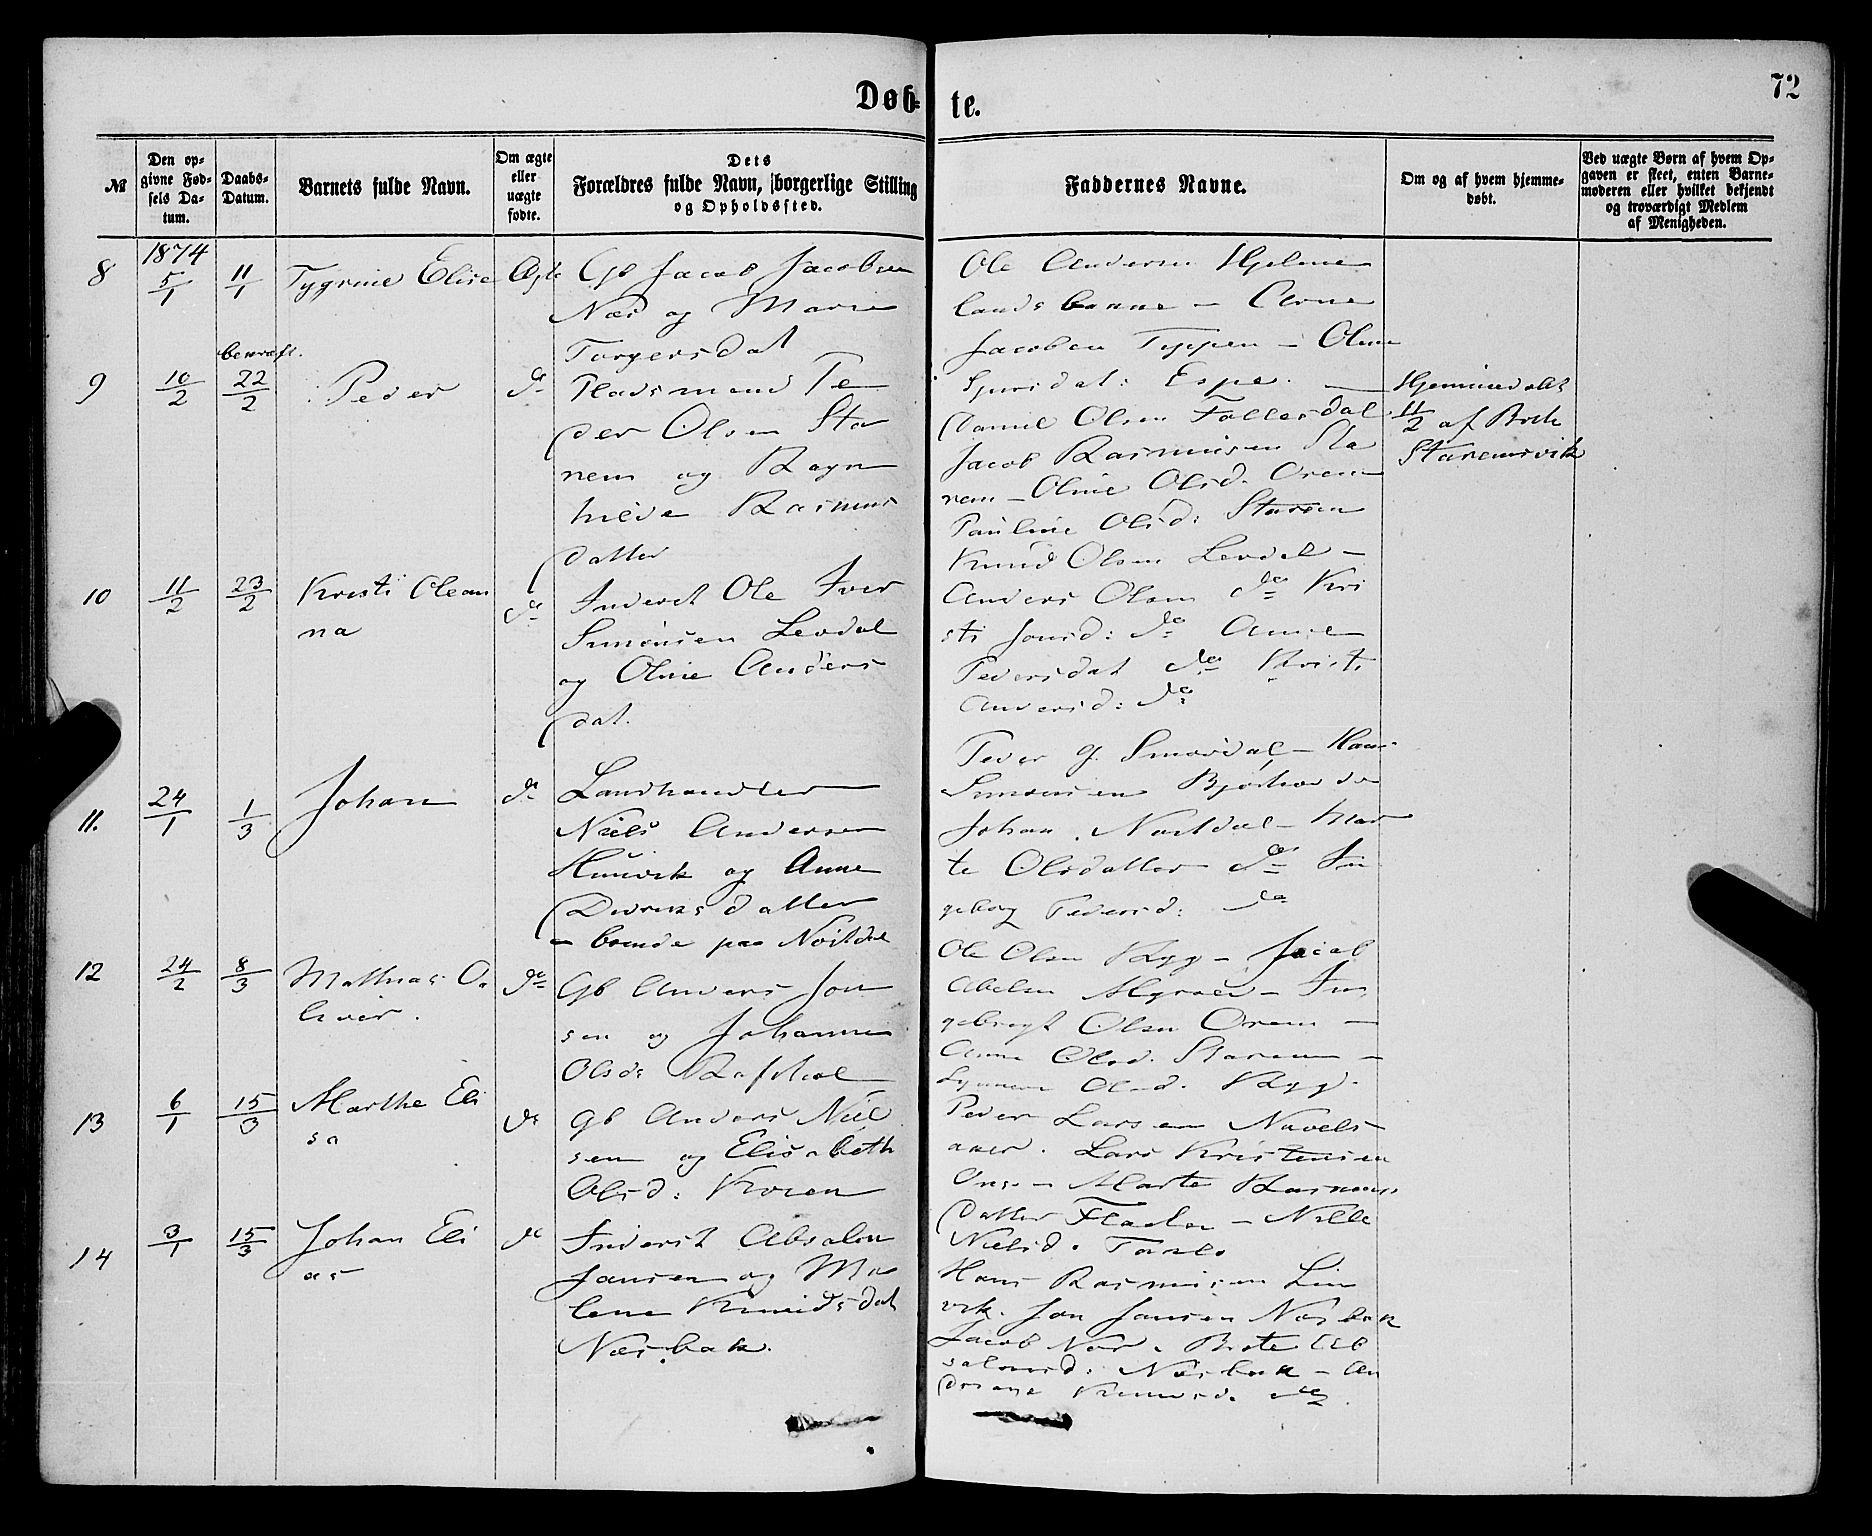 Døb-
te.
72
№
Den op-
givne Fød-
sels Da-
tum.
Daabs-
Datum.
Barnets fulde Navn.
Om ægte
eller
uægte
fødte.
Dets
Forældres fulde Navn, borgerlige Stilling
og Opholdssted.
Faddernes Navne.
Om og af hvem hjemme-
døbt.
Ved uægte Børn af hvem Op-
gaven er skeet, enten Barne-
moderen eller hvilket bekjendt
og troværdigt Medlem
af Menigheden.
1874
8
5/1
11/1
Elise
Gb Jacob Jacobsen
Næs og Marie
Torgersdat
Ole Andersen Hjelme
lands
Jacobsen - Oline
9
10/2
bekræft.
22/2
Peder
do
Pladsmand Pe
der Olsen Sta
rem og Ragn
hilde Rasmus
datter
Espe.
Daniel Olsen
Jacob Rasmusen Sta
rem - Oline Olsd. Orem
Pauline Olsd:
Hjemmedøbt
11/2 af Brite
Staremsvik
10
11/2
23/2
Kristi Olean
na
do
Inderst Ole Iver
Simonsen Levdal
og Oline Anders
dat.
Knud Olsen Levdal -
Anders Olsen do Kri
sti Jonsd: do Anne
Pedersdat do Kristi
Andersd: do
11.
24/1
1/3
Johan
do
Landhandler
Niels Andersen
og Anne
datter
boende paa Nordal
Peder - Hans
Simonsen
Johan Nordal - Mar
te Olsdatter do In
geborg Pedersd: do
12
24/2
8/3
Mathias O
liver.
do
Gb Anders Jon
sen og Johanne
Olsd:
Ole Olsen Ryg - Jacob
Abelsen - In
gebregt Olsen Orem -
Anne Olsd. Starem -
Olsd. Ryg.
13
6/1
15/3
Marthe Eli
sa
do
Gb Anders Niel
sen og Elisabeth
Olsd:
Peder Larsen Navels-
aker. Lars Kristensen
- Marte Rasmus
datter - Nille
Nielsd.
14
3/1
15/3
Johan Eli
as
do
Inderst Absalon
Jansen og Ma
lene Knudsdat
Næsbak.
Hans Rasmusen Lin
vik. Jon Jansen Næsbak
Jacob Næs. Brite Ab
salonsd: Næsbak - An
driane Knudsd. do